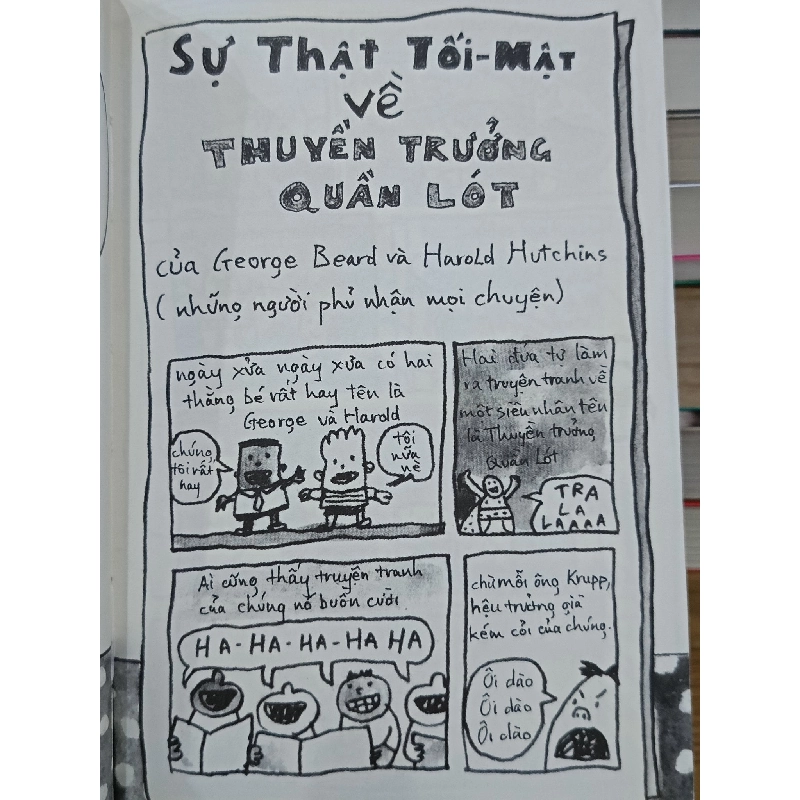 Sự Thật Tối-Mật
về
Thuyền Trưởng
Quần Lót
của George Beard và Harold Hutchins
(những người phủ nhận mọi chuyện)
ngày xửa ngày xưa có hai
thằng bé rất hay tên là
George và Harold
chúng
tôi rất
hay
tôi
nữa
nè
Hai đứa tự làm
ra truyện tranh về
một siêu nhân tên
là Thuyền trưởng
Quần Lót
TRA
LA
LAAAA
Ai cũng thấy truyện tranh
của chúng nó buồn cười.
HA-HA-HA-HA HA
chừ mỗi ông Krupp,
hệu trưởng già
kém cỏi của chúng.
Ôi dào
Ôi dào
Ôi dào